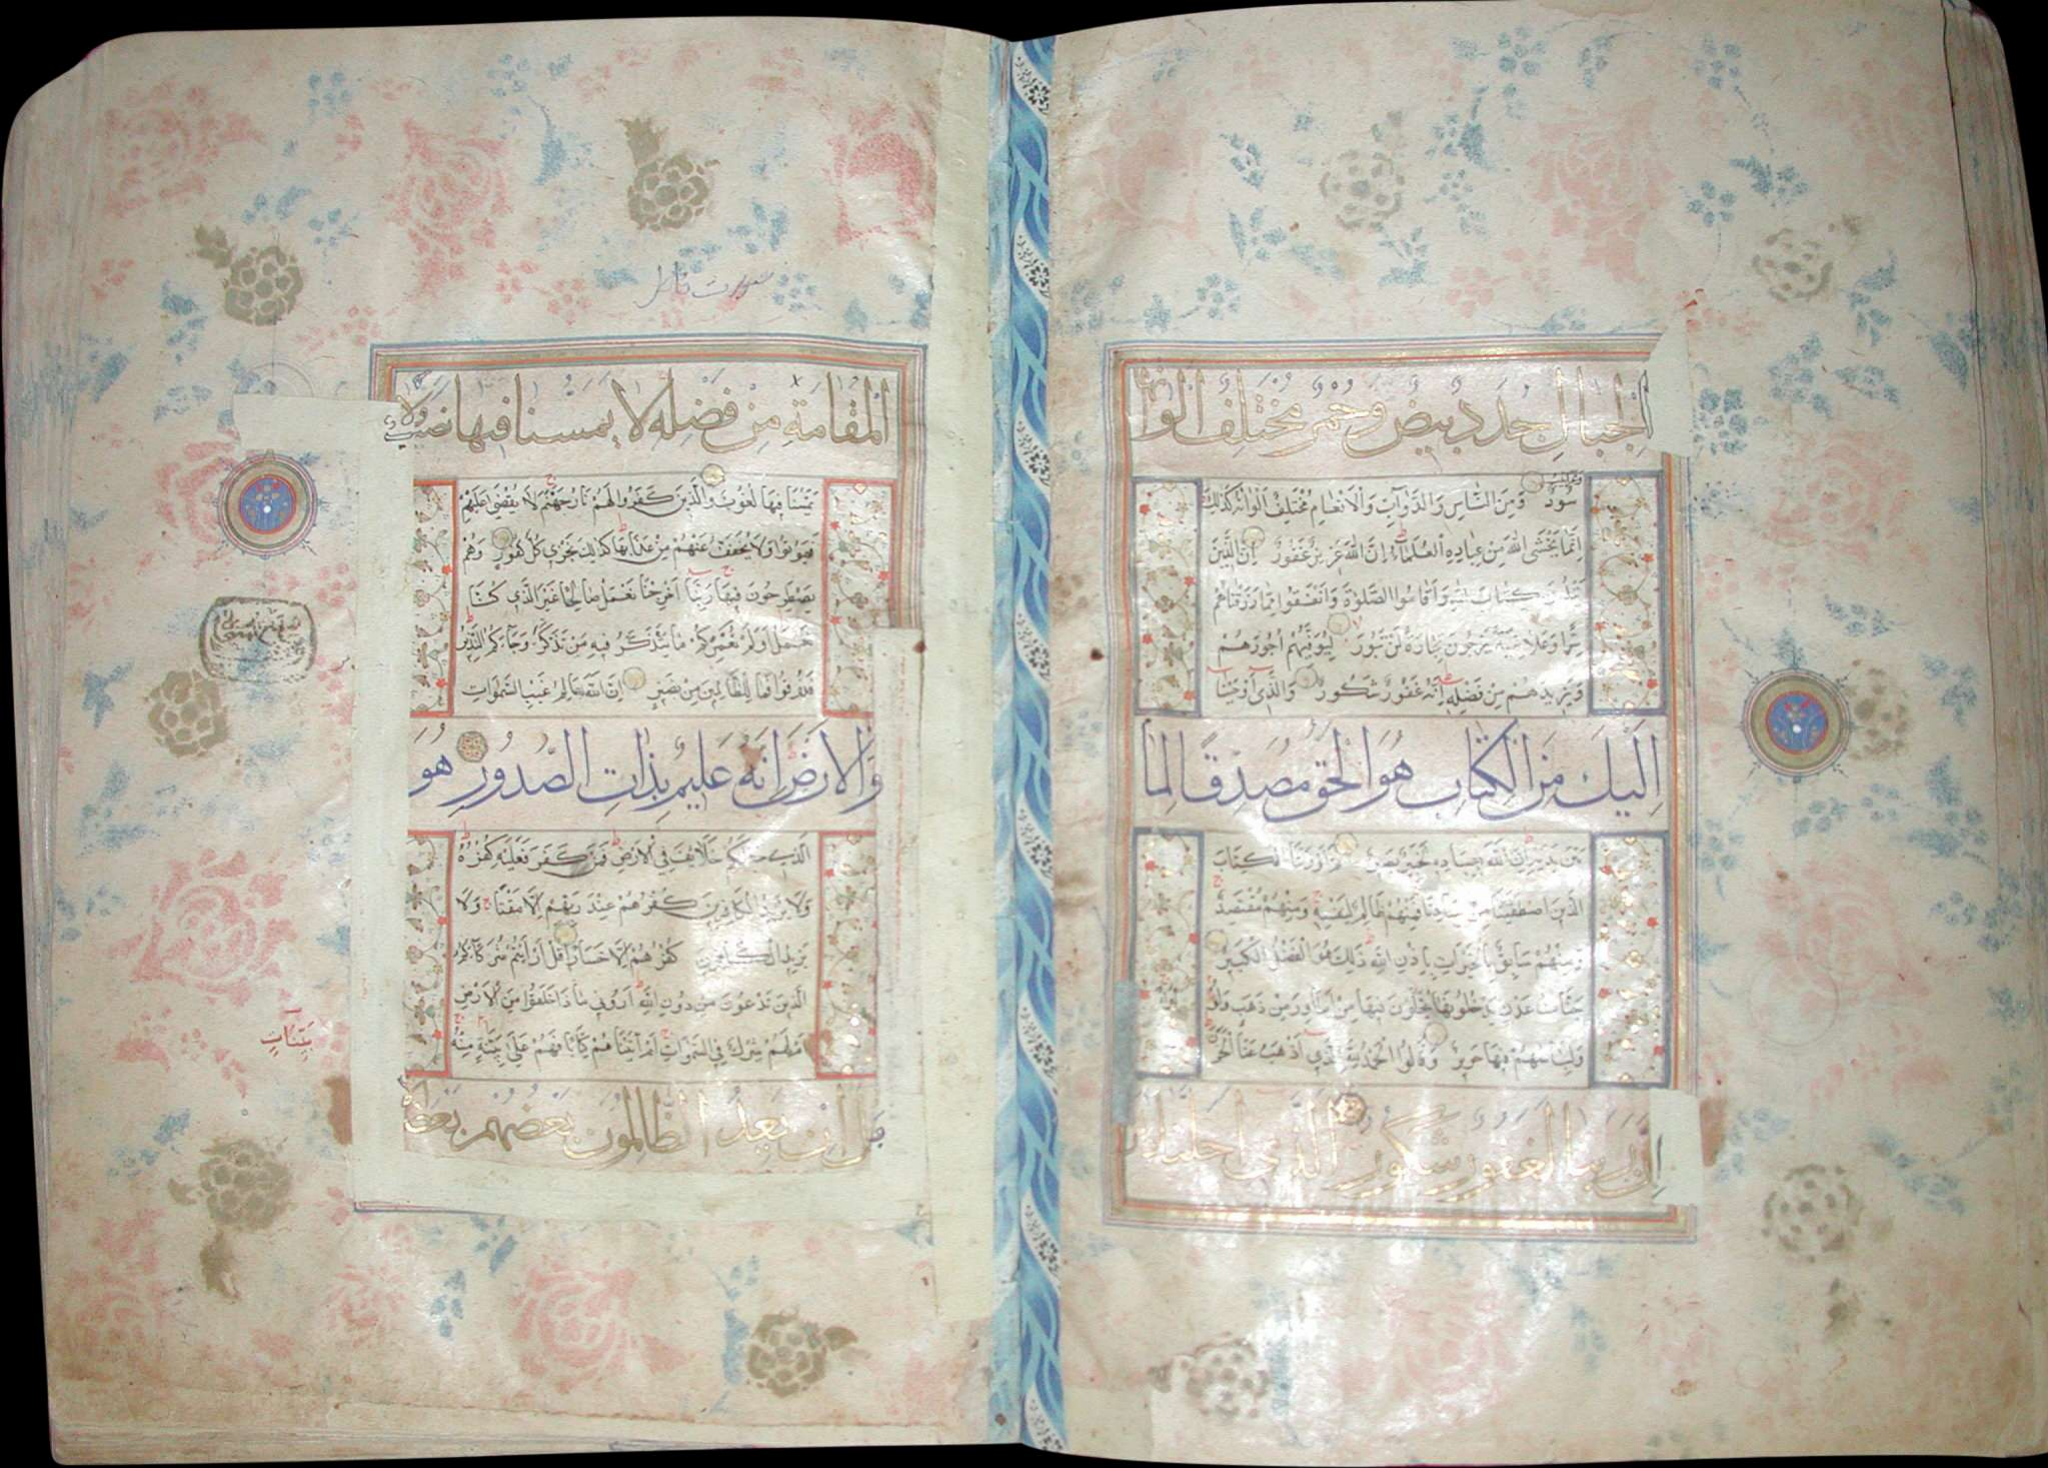 الجبال جدد بيض وحمر مختلف الوانها
سود ومن الناس والدواب والانعام مختلف الوانه كذلك
انما يخشى الله من عباده العلماء ان الله عزيز غفور ان الذين
يتلون كتاب الله واقاموا الصلوة وانفقوا مما رزقناهم
سرا وعلانية يرجون تجارة لن تبور ليوفيهم اجورهم
ويزيدهم من فضله انه غفور شكور والذي اوحينا
اليك من الكتاب هو الحق مصدقا لما
بين يديه ان الله بعباده لخبير بصير ثم اورثنا الكتاب
الذين اصطفينا من عبادنا فمنهم ظالم لنفسه ومنهم مقتصد
ومنهم سابق بالخيرات باذن الله ذلك هو الفضل الكبير
جنات عدن يدخلونها يحلون فيها من اساور من ذهب ولؤلؤا
ولباسهم فيها حرير وقالوا الحمد لله الذي اذهب عنا الحزن
ان ربنا لغفور شكور الذي احلنا دار
سورت فاطر
المقامة من فضله لا يمسنا فيها نصب ولا
يمسنا فيها لغوب والذين كفروا لهم نار جهنم لا يقضى عليهم
فيموتوا ولا يخفف عنهم من عذابها كذلك نجزي كل كفور وهم
يصطرخون فيها ربنا اخرجنا نعمل صالحا غير الذي كنا
نعمل اولم نعمركم ما يتذكر فيه من تذكر وجاءكم النذير
فذوقوا فما للظالمين من نصير ان الله عالم غيب السموات
والارض انه عليم بذات الصدور هو
الذي جعلكم خلائف في الارض فمن كفر فعليه كفره
ولا يزيد الكافرين كفرهم عند ربهم الا مقتا ولا
يزيد الكافرين كفرهم الا خسارا قل ارايتم شركاءكم
الذين تدعون من دون الله اروني ماذا خلقوا من الارض
ام لهم شرك في السموات ام اتيناهم كتابا فهم على بينة منه
بل ان يعد الظالمون بعضهم بعضا
بينات